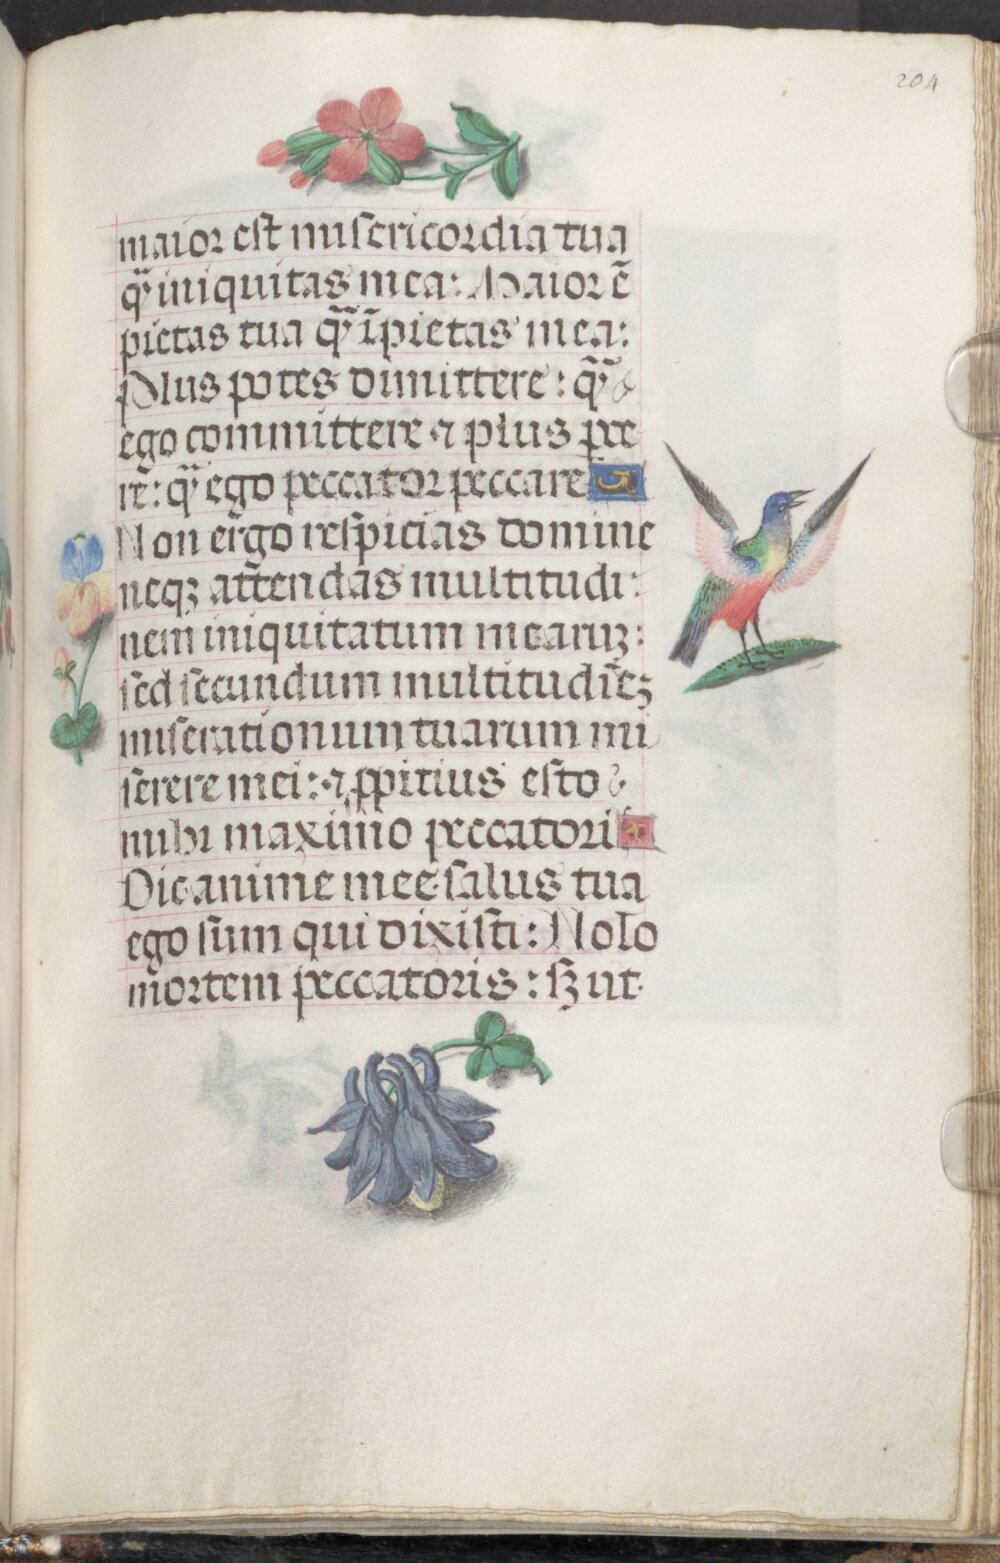 204
maior est misericordia tua
q̃ iniquitas mea: Maior ẽ
pietas tua q̃ ĩpietas mea:
Plus potes dimittere: q̃
ego committere ⁊ plus pce
rẽ: q̃ ego peccator peccare
Non ergo respicias domine
neqꝫ attendas multitudi:
nem iniquitatum mearuꝫ:
sed secundum multitudinẽ
miserationum tuarum mi
serere mei: ⁊ ꝓpitius esto
mihi maximo peccatori
Dic anime mee salus tua
ego sum qui dixisti: Nolo
mortem peccatoris: sꝫ ut